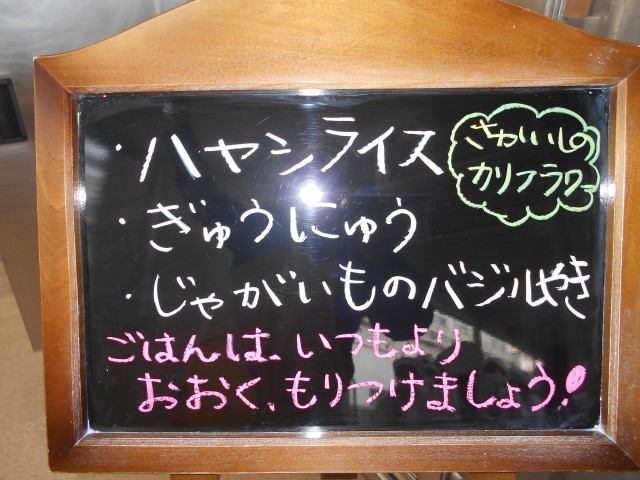 ・ハヤシライス
さかいしの
カリフラワー
・ぎゅうにゅう
・じゃがいものバジルやき
ごはんは、いつもより
おおく、もりつけましょう!